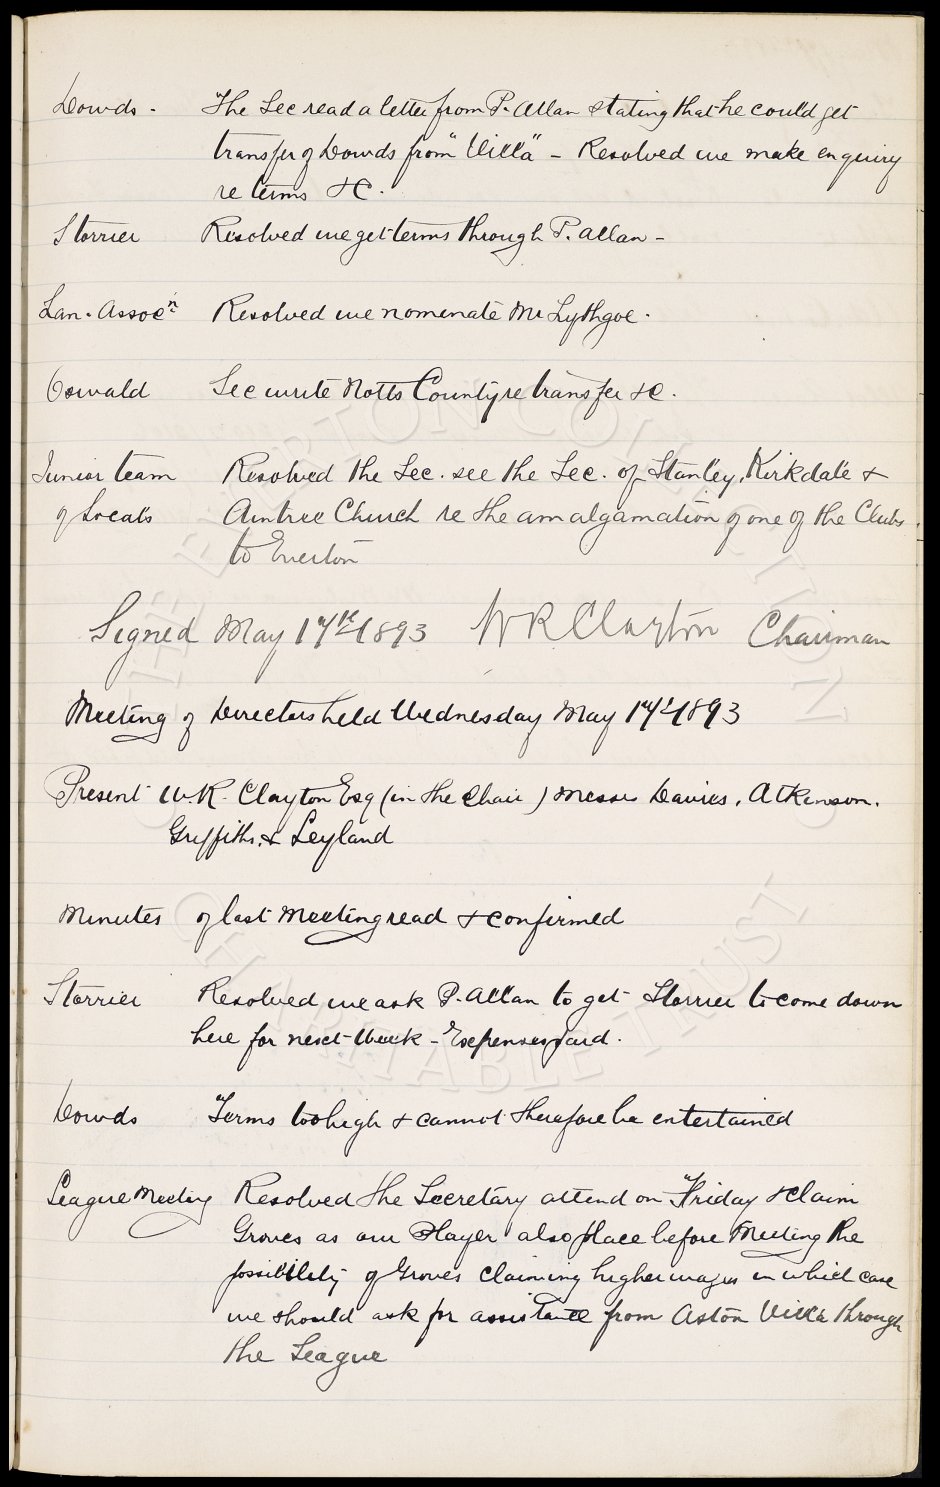 Dowds - The Sec read a letter from P. Allan stating that he could get
transfer of Dowds from "Villa" - Resolved we make enquiry
re terms &c.
Storrier Resolved we get terms through P. Allan -
Lan. Assocn Resolved we nomenate Mr Lythgoe.
Oswald Sec write Notts County re transfer &c.
Junior team Resolved the Sec. see the Sec. of Stanley, Kirkdale &
of Locals Aintree Church re the amalgamation of one of the Clubs.
to Everton
Signed May 17th 1893 WR Clayton Chairman
Meeting of Directors held Wednesday May 17th 1893
Present W.R. Clayton Esq (in the Chair) Messrs Davies, Atkinson.
Griffiths. & Leyland
Minutes of last Meeting read & confirmed
Storrier Resolved we ask P. Allan to get Storrier to come down
here for next Week - Expenses paid.
Dowds Terms too high & cannot therefore be entertained
League Meeting Resolved the Secretary attend on Friday & claim
Groves as our Player also place before Meeting the
possibility of Groves claiming higher wages in which case
we should ask for assistance from Aston Villa through
the League
THE EVERTON COLLECTION
CHARITABLE TRUST